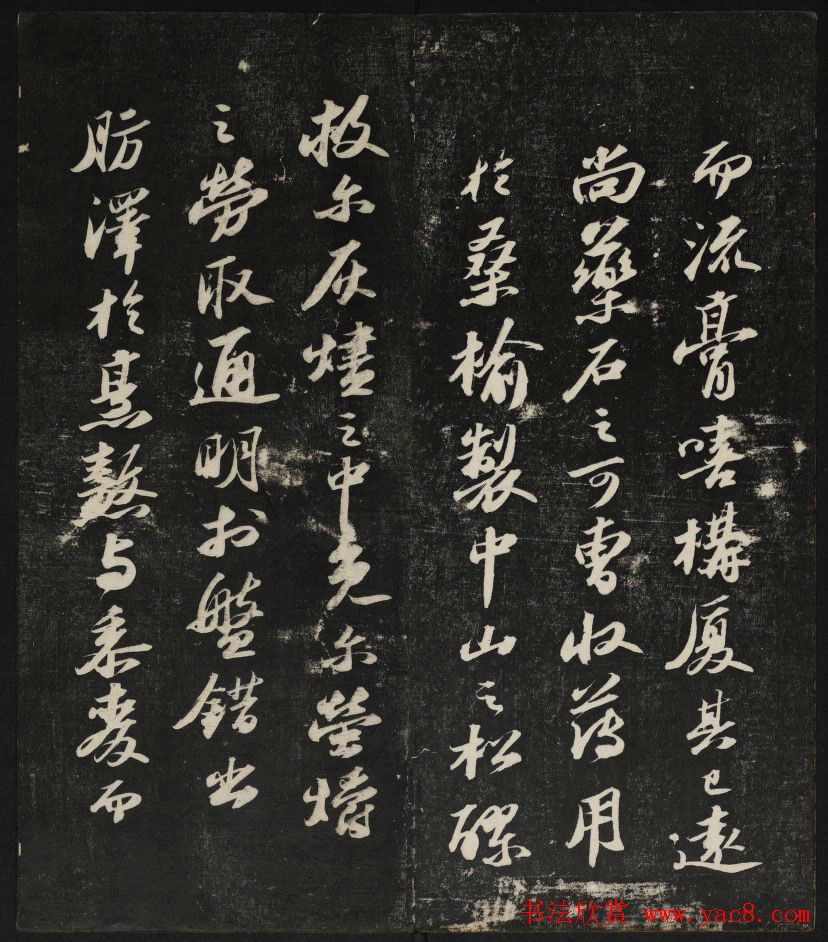 而流膏嘻構厦其已遠
尚藥石之可曹收薄用
於桑榆製中山之松醪
救尔灰燼之中免尔螢爝
之勞取通明於盤錯出
肪澤於烹熬与黍麥而
书法欣赏 www.yac8.com